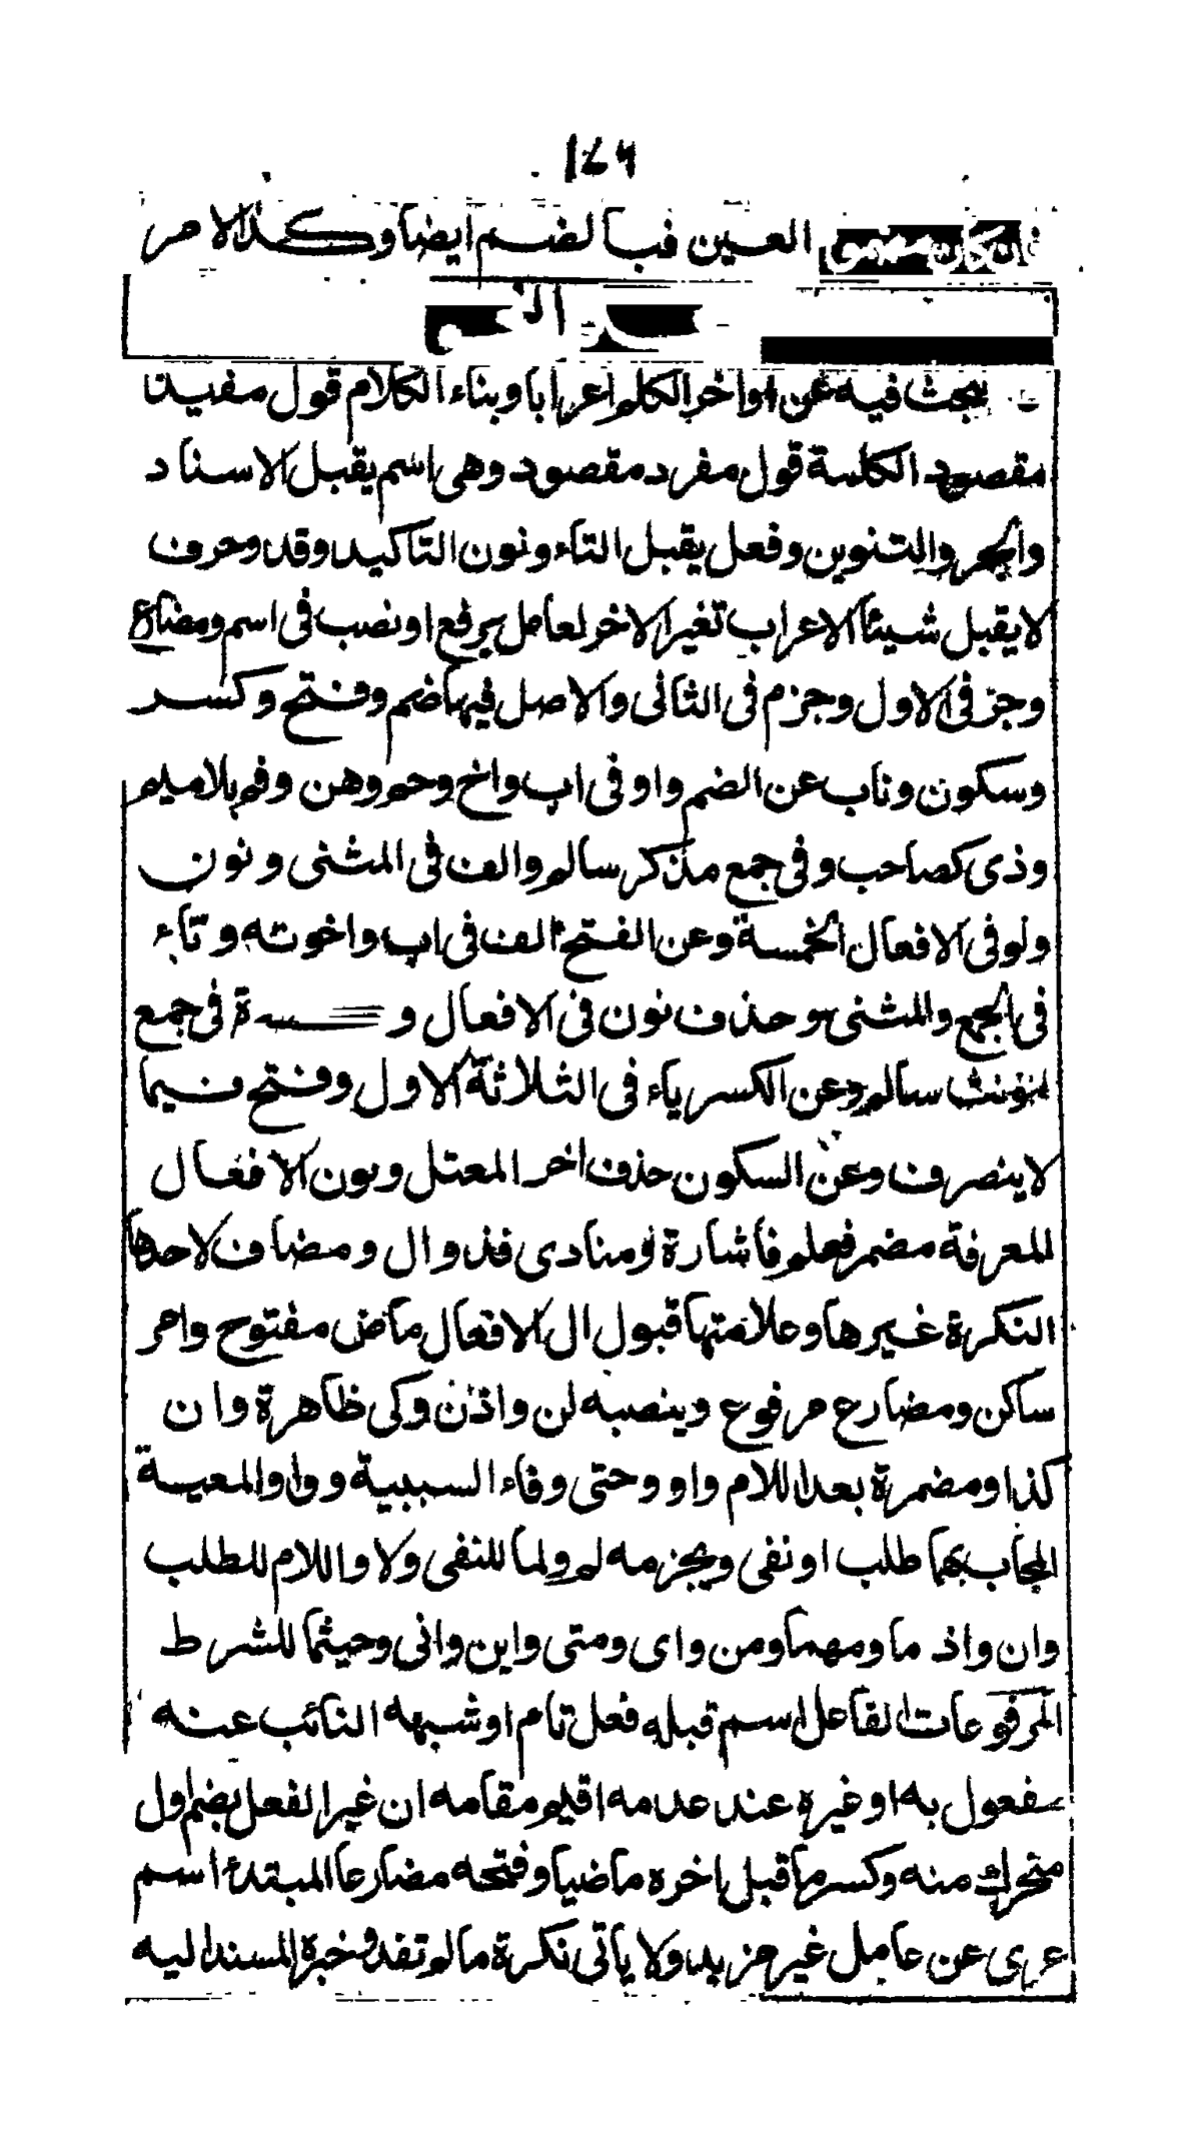 ١٤٦
فان كان مضموم العين فبالضم ايضا وكذا الامر
يبحث فيه عن اواخر الكلم اعرابا وبناء الكلام قول مفيد
مقصود الكلمة قول مفرد مقصود وهى اسم يقبل الاسناد
والجر والتنوين وفعل يقبل التاء ونون التاكيد وقد وحرف
لا يقبل شيئا الاعراب تغير الاخر لعامل برفع او نصب فى اسم ومضارع
وجر فى الاول وجزم فى الثانى والاصل فيها ضم وفتح وكسر
وسكون وناب عن الضم واو فى اب واخ وحم وهن وفم بلا ميم
وذى كصاحب وفى جمع مذكر سالم والف فى المثنى ونون
ولو فى الافعال الخمسة وعن الفتح الف فى اب واخوته وياء
فى الجمع والمثنى وحذف نون فى الافعال و سرة فى جمع
مؤنث سالم وعن الكسر ياء فى الثلاثة الاول وفتح فيما
لا ينصرف وعن السكون حذف اخر المعتل ونون الافعال
المعرفة مضمر فعلم فاشارة ومنادى فذو ال ومضاف لاحدها
النكرة غيرها وعلامتها قبول ال الافعال ماض مفتوح وامر
ساكن ومضارع مرفوع وينصبه لن واذن وكى ظاهرة وان
كذا ومضمرة بعد اللام واو وحتى وفاء السببية وواو المعية
المجاب بهما طلب او نفى ويجزمه لم ولما للنفى ولا واللام للطلب
وان واذ ما ومهما ومن واى ومتى واين وانى وحيثما للشرط
المرفوعات الفاعل اسم قبله فعل تام او شبهه النائب عنه
مفعول به او غيره عند عدمه اقيم مقامه ان غير الفعل بضم اول
متحرك منه وكسر ما قبل اخره ماضيا وفتحه مضارعا المبتدأ اسم
عرى عن عامل غير مزيد ولا ياتى نكرة ما لم تفد وخبره المسند اليه